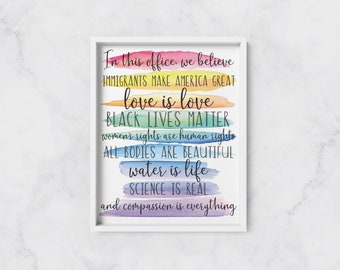 In this office, we believe
IMMIGRANTS MAKE AMERICA GREAT
love is love
BLACK LIVES MATTER
women's rights are human rights
ALL BODIES ARE BEAUTIFUL
water is life
SCIENCE IS REAL
and compassion is everything